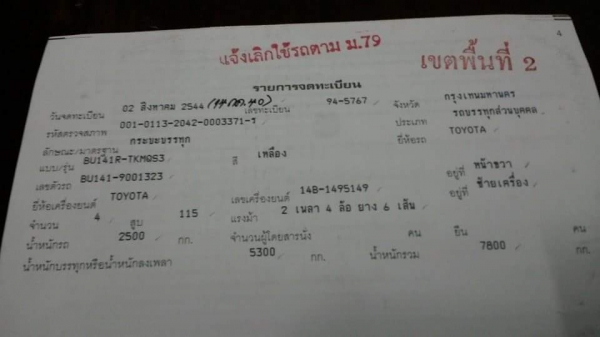 4
แจ้งเลิกใช้รถตาม ม.79
เขตพื้นที่ 2
รายการจดทะเบียน
วันจดทะเบียน 02 สิงหาคม 2544 เลขทะเบียน 94-5767 จังหวัด กรุงเทพมหานคร
รหัสตรวจสภาพ 001-0113-2042-0003371-ร ประเภท รถบรรทุกส่วนบุคคล
ลักษณะ/มาตรฐาน กระบะบรรทุก ยี่ห้อรถ TOYOTA
แบบ/รุ่น BU141R-TKMQS3 สี เหลือง
เลขตัวรถ BU141-9001323 อยู่ที่ หน้าขวา
ยี่ห้อเครื่องยนต์ TOYOTA เลขเครื่องยนต์ 14B-1495149 อยู่ที่ ซ้ายเครื่อง
จำนวน 4 สูบ 115 แรงม้า 2 เพลา 4 ล้อ ยาง 6 เส้น
น้ำหนักรถ 2500 กก. จำนวนผู้โดยสารนั่ง คน ยืน คน
น้ำหนักบรรทุกหรือน้ำหนักลงเพลา 5300 กก. น้ำหนักรวม 7800 กก.